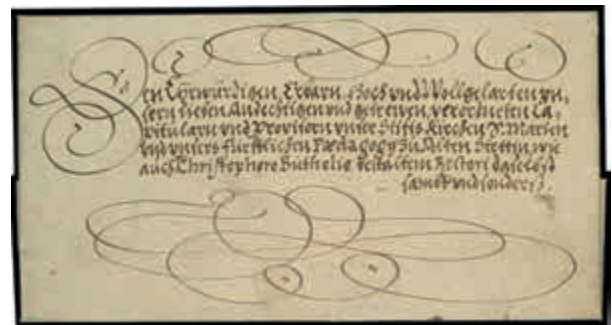 Den Ehrwürdigen, Erbarn, Hoch und Wollgelarten, un,
sern lieben Andechtigen und getrewen, verordneten Ca,
pitularn und Provisorn unser Stifts Kirchen S. Marien
und unsers fürstlichen Pædagogy zu Alten Stettin, wie
auch Christophoro Butkelio bestaltem Rectori daselbst
sambt und sonders.